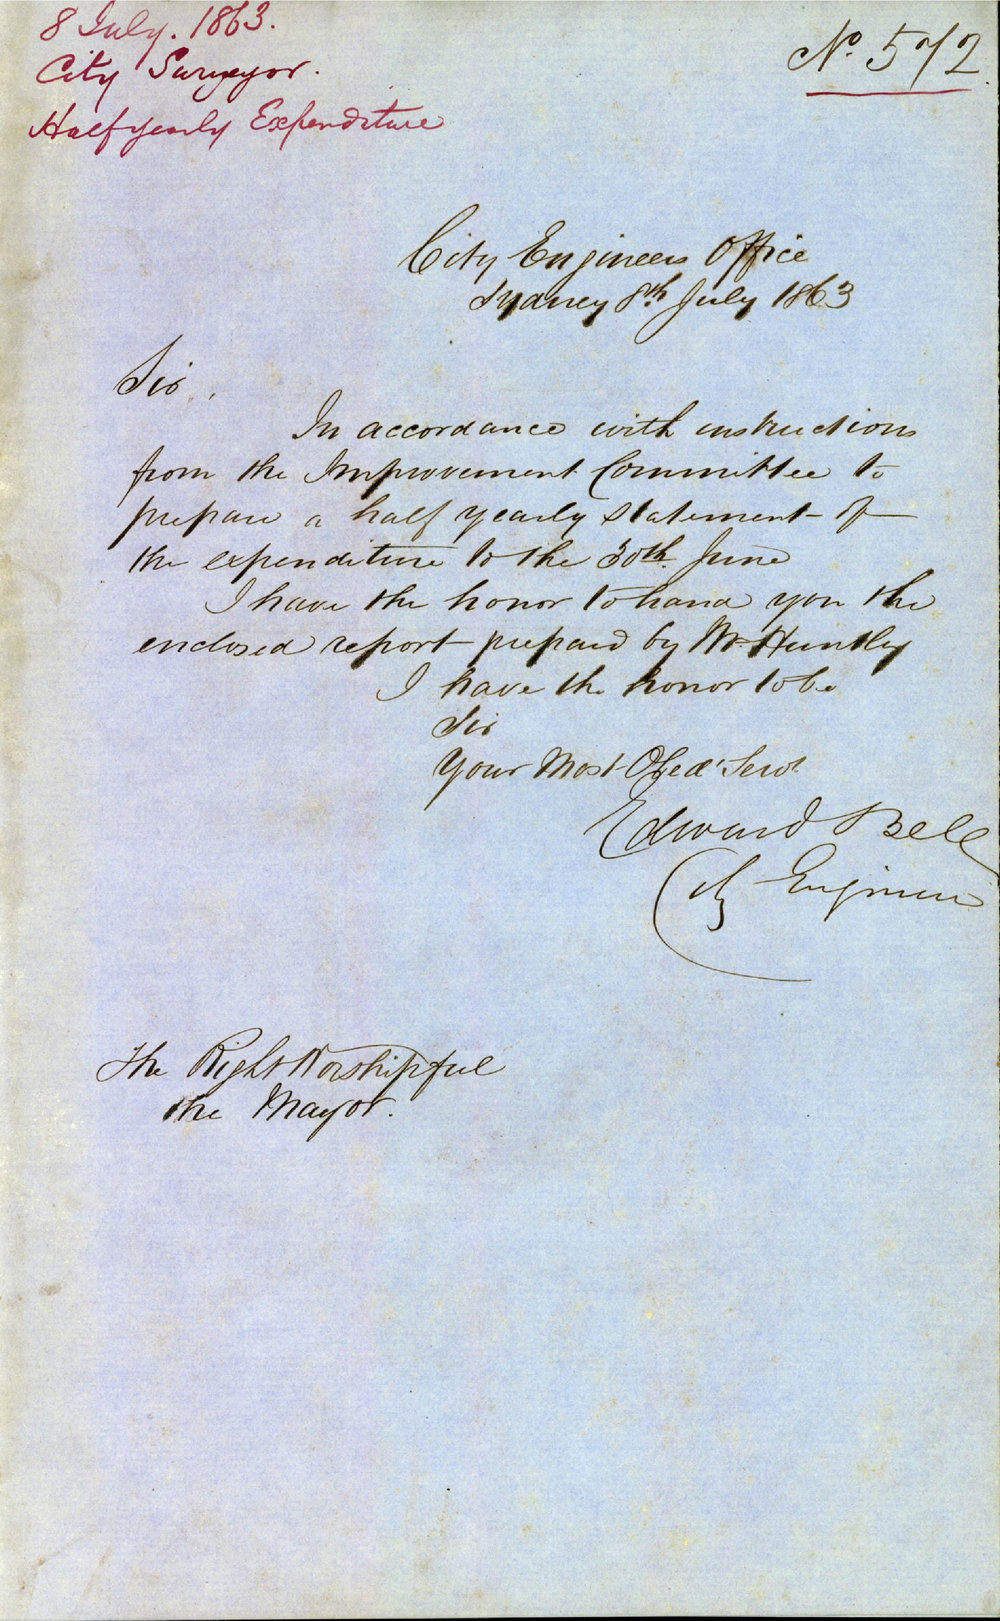 8 July. 1863.
City Surveyor.
Half yearly Expenditure
No. 572
City Engineers Office
Sydney 8th July 1863
Sir,
In accordance with instructions
from the Improvement Committee to
prepare a half yearly statement of
the expenditure to the 30th June
I have the honor to hand you the
enclosed report prepared by Mr Huntley
I have the honor to be
Sir
Your Most Obedt Servt
Edward Bell
City Engineer
The Right Worshipful
the Mayor.